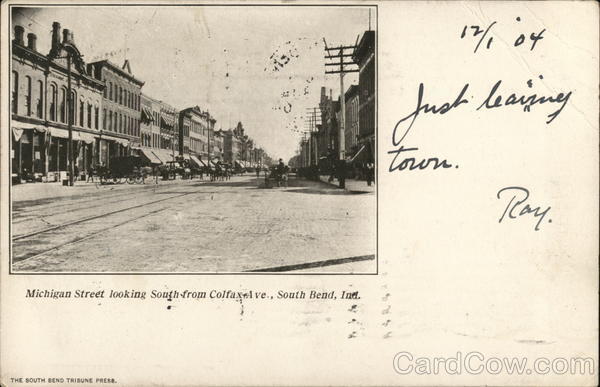 12/1 04
Just leaving
town.
Ray.
Michigan Street looking South from Colfax Ave., South Bend, Ind.
THE SOUTH BEND TRIBUNE PRESS.
CardCow.com